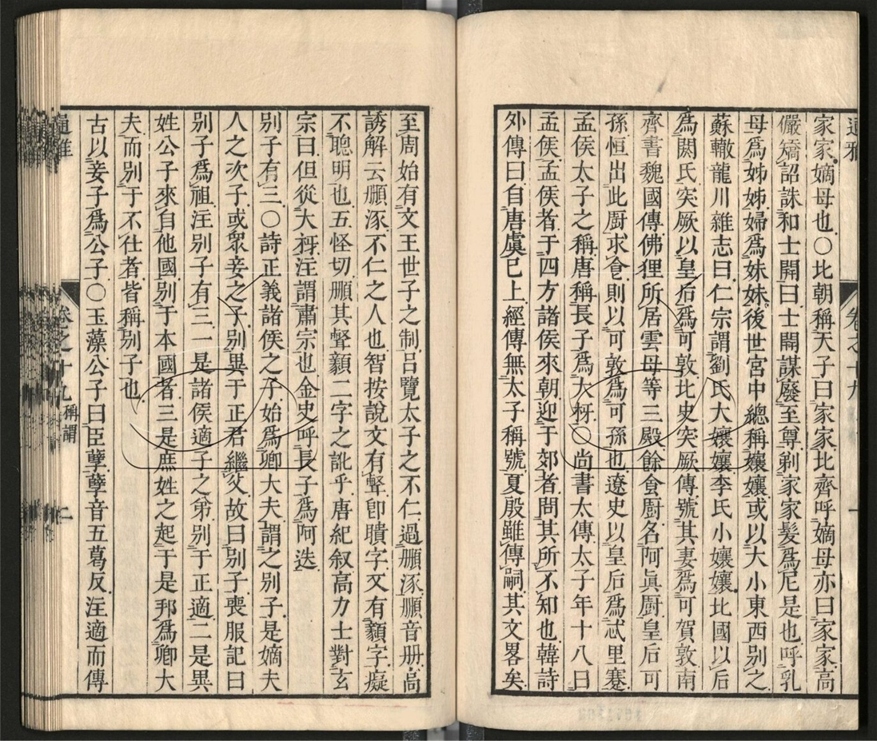 家家嫡母也○北朝稱天子曰家家北齊呼嫡母亦曰家家高
儼矯詔誅和士開曰士開謀廢至尊剃家家髮爲尼是也呼乳
母爲姊姊婦爲妹妹後世宮中總稱孃孃或以大小東西別之
蘇轍龍川雜志曰仁宗謂劉氏大孃孃李氏小孃孃北國以后
爲閼氏突厥以皇后爲可敦北史突厥傳號其妻爲可賀敦南
齊書魏國傳佛狸所居雲母等三殿餘食厨名阿眞厨皇后可
孫恒出此厨求食則以可敦爲可孫也遼史以皇后爲忒里蹇
孟侯太子之稱唐稱長子爲大㸙○尚書太傳太子年十八曰
孟侯孟侯者于四方諸侯來朝迎于郊者問其所不知也韓詩
外傳曰自唐虞已上經傳無太子稱號夏殷雖傳嗣其文畧矣
通雅
卷之十九
至周始有文王世子之制呂覽太子之不仁過顐涿顐音册高
誘解云顐涿不仁之人也智按說文有聲卽聵字又有顡字癡
不聰明也五怪切顐其聲顡二字之訛乎唐紀叙高力士對玄
宗曰但從大㸙注謂肅宗也金史呼長子爲阿迭
別子有三○詩正義諸侯之子始爲卿大夫謂之別子是嫡夫
人之次子或衆妾之子別異于正君繼父故曰別子喪服記曰
別子爲祖注別子有三一是諸侯適子之弟別于正適二是異
姓公子來自他國別于本國者三是庶姓之起于是邦爲卿大
夫而別于不仕者皆稱別子也
古以妾子爲公子○玉藻公子曰臣孽孽音五葛反注適而傳
通雅
卷之十九 稱謂